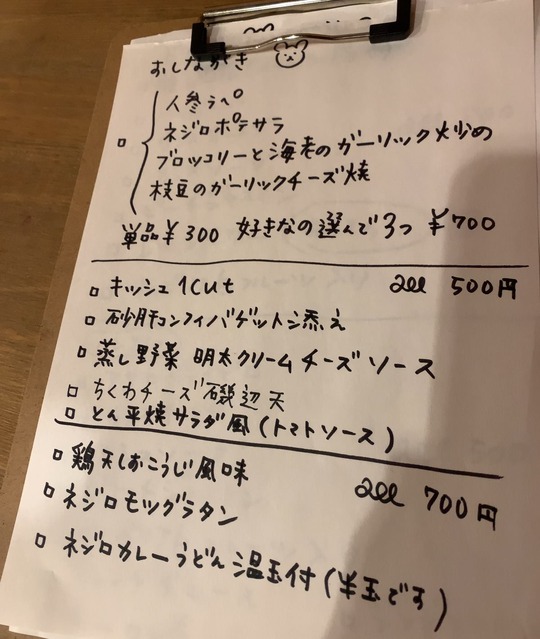 おしながき
人参ラペ
ネジロポテサラ
ブロッコリーと海老のガーリック炒め
枝豆のガーリックチーズ焼
単品¥300 好きなの選んで3つ ¥700
キッシュ1cut all 500円
砂肝コンフィバゲット添え
蒸し野菜 明太クリームチーズソース
ちくわチーズ磯辺天
とん平焼サラダ風(トマトソース)
鶏天しおこうじ風味 all 700円
ネジロモツグラタン
ネジロカレーうどん温玉付(半玉です)